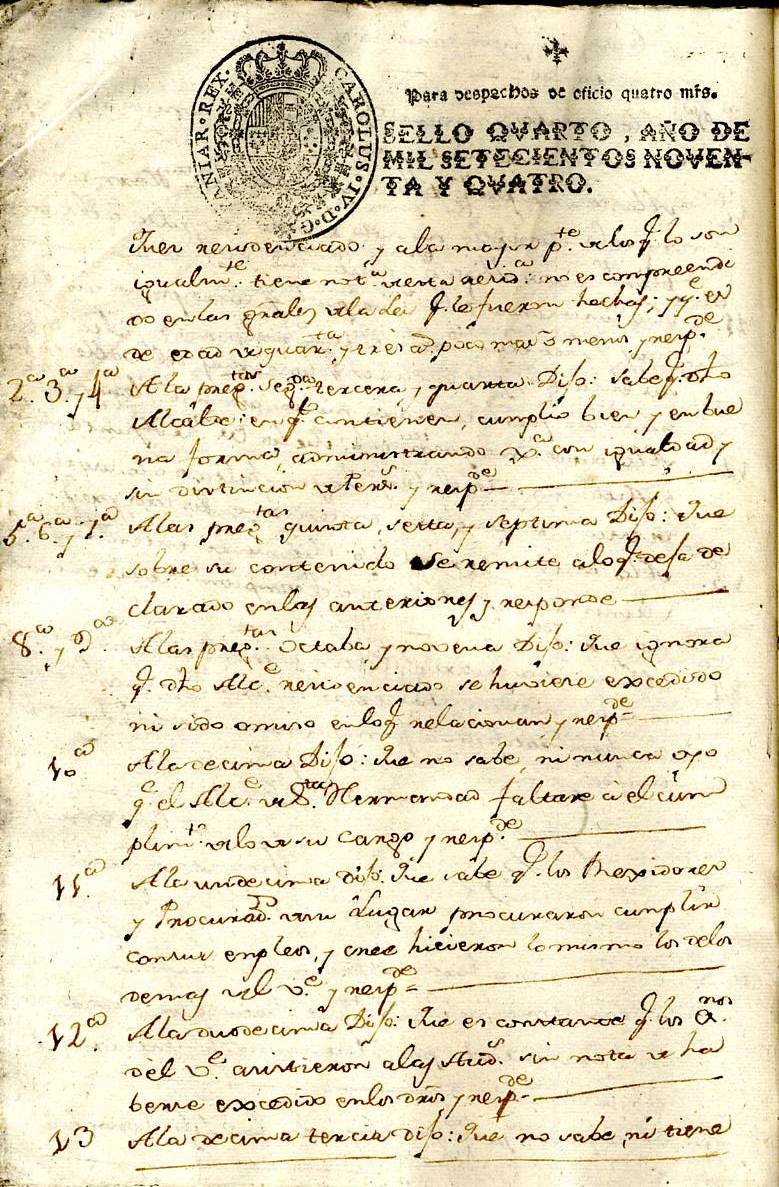 CAROLUS · IV · D · G · HISPANIAR · REX ·
Para despachos de oficio quatro mrs.
SELLO QVARTO, AÑO DE
MIL SETECIENTOS NOVEN-
TA Y QVATRO.
Juez residenciado y ala mayor pte. de los q. lo son
igualmte. tiene nota. de esta no es compreendi
do en las grales. de la Lei q. le fueron hechas; y qe. es
de edad de quarta. y tres as. poco mas o menos y respde.
2a. 3a. y 4a A la pregtas. segda. tercera, y quarta Dijo: sabe q. dho
Alcalde: en qto. contienen, cumplio bien y en bue
na forma, administrando Jxa. con igualdad y
sin distincion de Pers. y respde
5a. 6a. y 7a. A las pregtas. quinta, sexta, y septima Dijo: Que
sobre su contenido se remite alo q. deja de
clarado en las anteriores y responde
8a. y 9a. A las pregtas. octaba y novena Dijo: Que ignora
q. dho Alce. residenciado se huviere excedido
ni sido omiso en lo q. relacionan y respde
10a A la decima Dijo: Que no sabe, ni nunca oyo
qe. el Alce. de Sta. Hermandad faltare à el cum
plimto. de lo de su cargo y respde.
11a. A la undecima Dijo: Que sabe q. los Rexidores
y Procurador. de su Lugar procuraron cumplir
con sus empleos, y cree hicieron lo mismo los delos
demas del Ve. y respde
12a A la duodecima Dijo: Que es constante q. los
del Ve. asistieron alas Auds. sin nota de ha
berse excedido en los dros y respde.
13 A la decima tercia dijo: Que no sabe, ni tiene